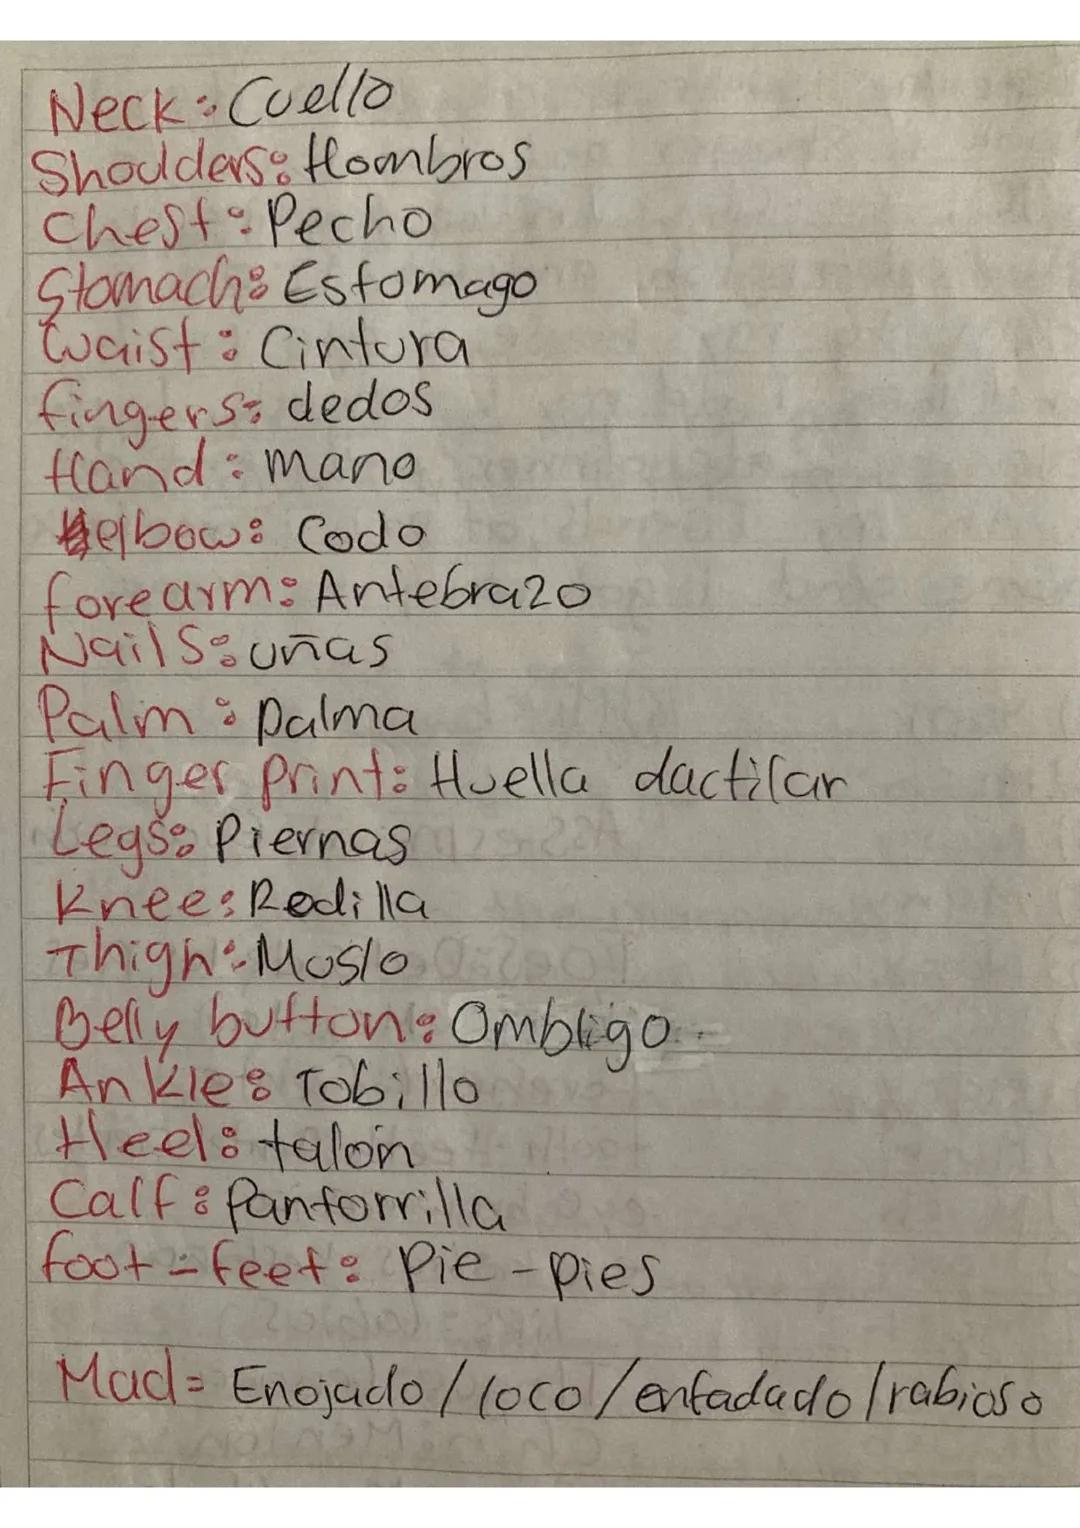 Neck: Cuello
Shoulders: Hombros
Chest: Pecho
Stomach: Estomago
Waist: Cintura
fingers: dedos
Hand: mano
elbow: Codo
forearm: Antebrazo
Nails: uñas
Palm: palma
Finger print: Huella dactilar
Legs: Piernas
Knee: Rodilla
Thigh: Muslo
Belly button: Ombligo
Ankle: Tobillo
Heel: talón
Calf: Pantorrilla
foot - feet: Pie - pies
Mad= Enojado / loco / enfadado / rabioso